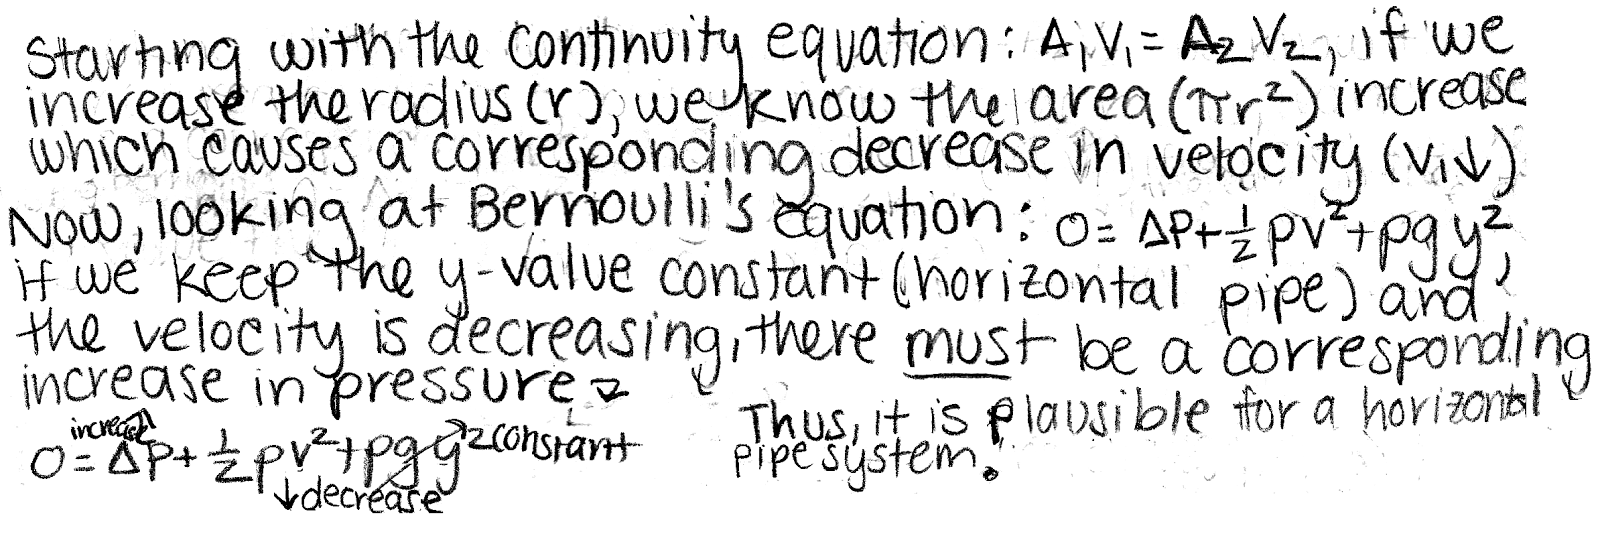 Starting with the continuity equation: A₁V₁ = A₂V₂, if we
increase the radius (r), we know the area (πr²) increase
which causes a corresponding decrease in velocity (V₁↓)
Now, looking at Bernoulli's equation: 0 = ΔP + ½ρv² + ρgy²,
if we keep the y-value constant (horizontal pipe) and
the velocity is decreasing, there must be a corresponding
increase in pressure
increase
0 = ΔP + ½ρv² + ρgy² constant
↓decrease
Thus, it is plausible for a horizontal
pipe system.